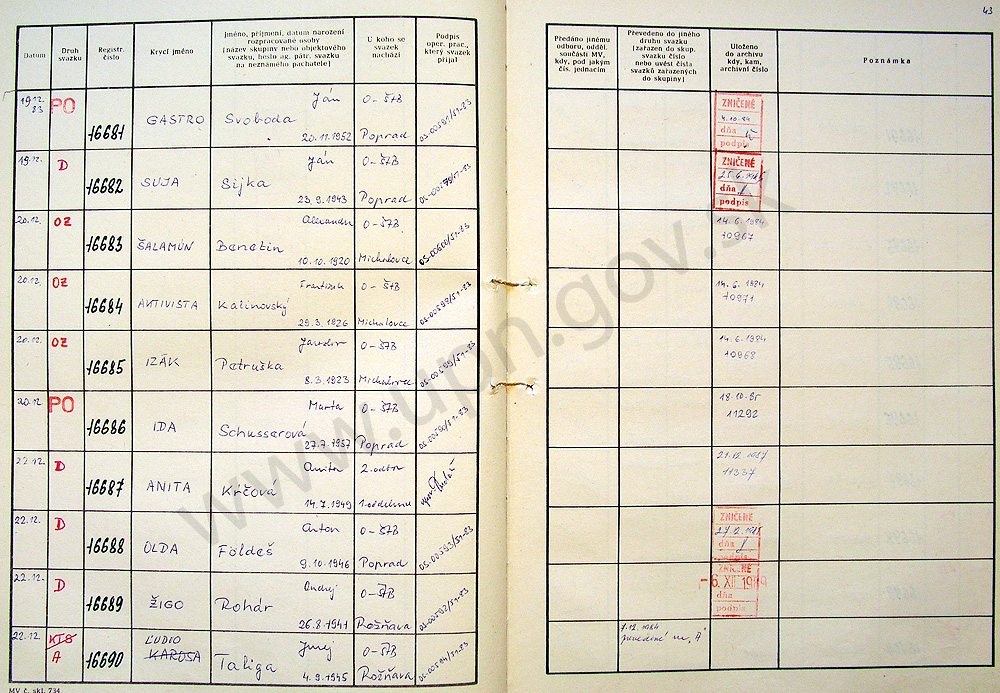 43
Datum
Druh svazku
Registr. číslo
Krycí jméno
Jméno, příjmení, datum narození rozpracované osoby [název skupiny nebo objektového svazku, heslo ag. pátr. svazku na neznámého pachatele]
U koho se svazek nachází
Podpis oper. prac., který svazek přijal
Předáno jinému odboru, odděl. součásti MV, kdy, pod jakým čís. jednacím
Převedeno do jiného druhu svazku [zařazen do skup. svazku číslo nebo uvést čísla svazků zařazených do skupiny]
Uloženo do archivu kdy, kam, archivní číslo
Poznámka
19.12. 83 PO 16681 GASTRO Svoboda Ján 20.11.1952 O-ŠTB Poprad ZNIČENÉ 4.10.84 dňa podpis
19.12. D 16682 SUJA Sijka Ján 23.9.1943 O-ŠTB Poprad ZNIČENÉ dňa podpis
20.12. OZ 16683 ŠALAMÚN Benetin 10.10.1920 O-ŠTB Michalovce 14.6.1984 10967
20.12. OZ 16684 AKTIVISTA Kalinovský František 29.3.1926 O-ŠTB Michalovce 14.6.1984 10971
20.12. OZ 16685 IZÁK Petruška 8.3.1923 O-ŠTB Michalovce 14.6.1984 10968
20.12 PO 16686 IDA Schusserová Marta 27.7.1957 O-ŠTB Poprad 18.10.85 11292
22.12. D 16687 ANITA Krčová Anita 14.7.1949 2.odbor 21.12.1987 11337
22.12. D 16688 OLDA Földeš Anton 9.10.1946 O-ŠTB Poprad ZNIČENÉ dňa podpis
22.12. D 16689 ŽIGO Rohár Andrej 26.8.1941 O-ŠTB Rožňava ZNIČENÉ -6. XII. 1989 dňa podpis
22.12. KTS A 16690 ĽUDIO KAROSA Taliga Juraj 4.9.1945 O-ŠTB Rožňava 7.12.1984 prevedené na „A"
MV č. skl. 734
www.upn.gov.sk